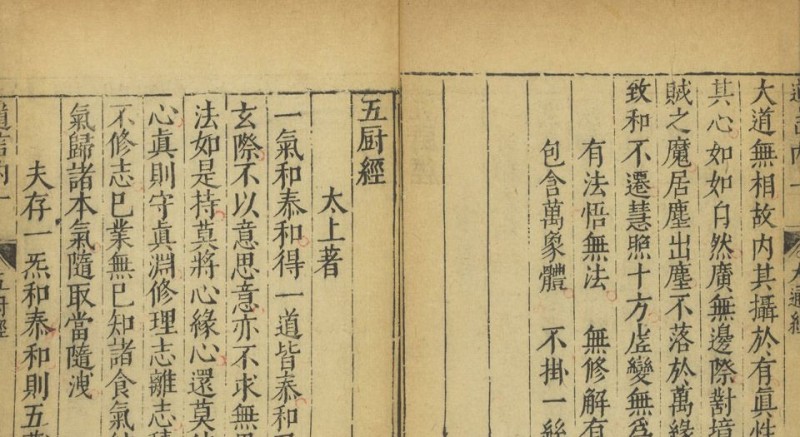 大道無相故內其攝於有真性
其心如如自然廣無邊際對境
賊之魔居塵出塵不落於萬緣
致和不遷慧照十方虛變無為
有法悟無法 無修解有
包含萬象體 不掛一絲
五厨經
太上著
一氣和泰和得一道皆泰和
玄際不以意思意亦不求無思
法如是持莫將心緣心還莫
心眞則守眞淵修理志離志
不修志已業無已知諸食氣
氣歸諸本氣隨取當隨洩
夫存一炁和泰和則五
五厨經